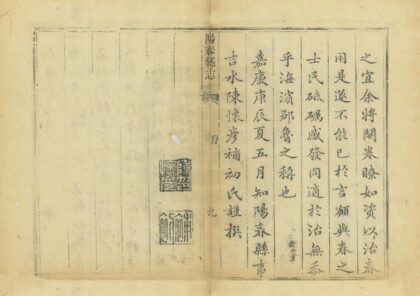 之宜余將開卷瞭如資以治春
用是遂不能已於言願與春之
士民砥礪感發同適於治無忝
乎海濱鄒魯之稱也
嘉慶庚辰夏五月知陽春縣事
吉水陳懷彥補初氏謹撰
陽春縣志
序